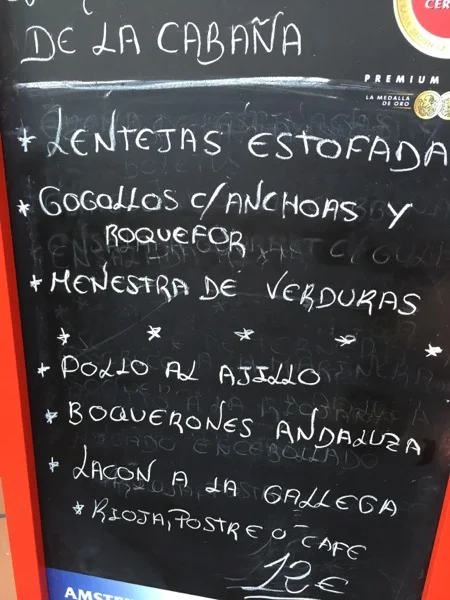 DE LA CABAÑA
CER
PREMIUM
LA MEDALLA
DE ORO
* LENTEJAS ESTOFADA
* GOGOLLOS C/ANCHOAS Y
ROQUEFOR
* MENESTRA DE VERDURAS
* * * * *
* POLLO AL AJILLO
* BOQUERONES ANDALUZA
* LACON A LA GALLEGA
* RIOJA, POSTRE O CAFE
12€
AMSTE